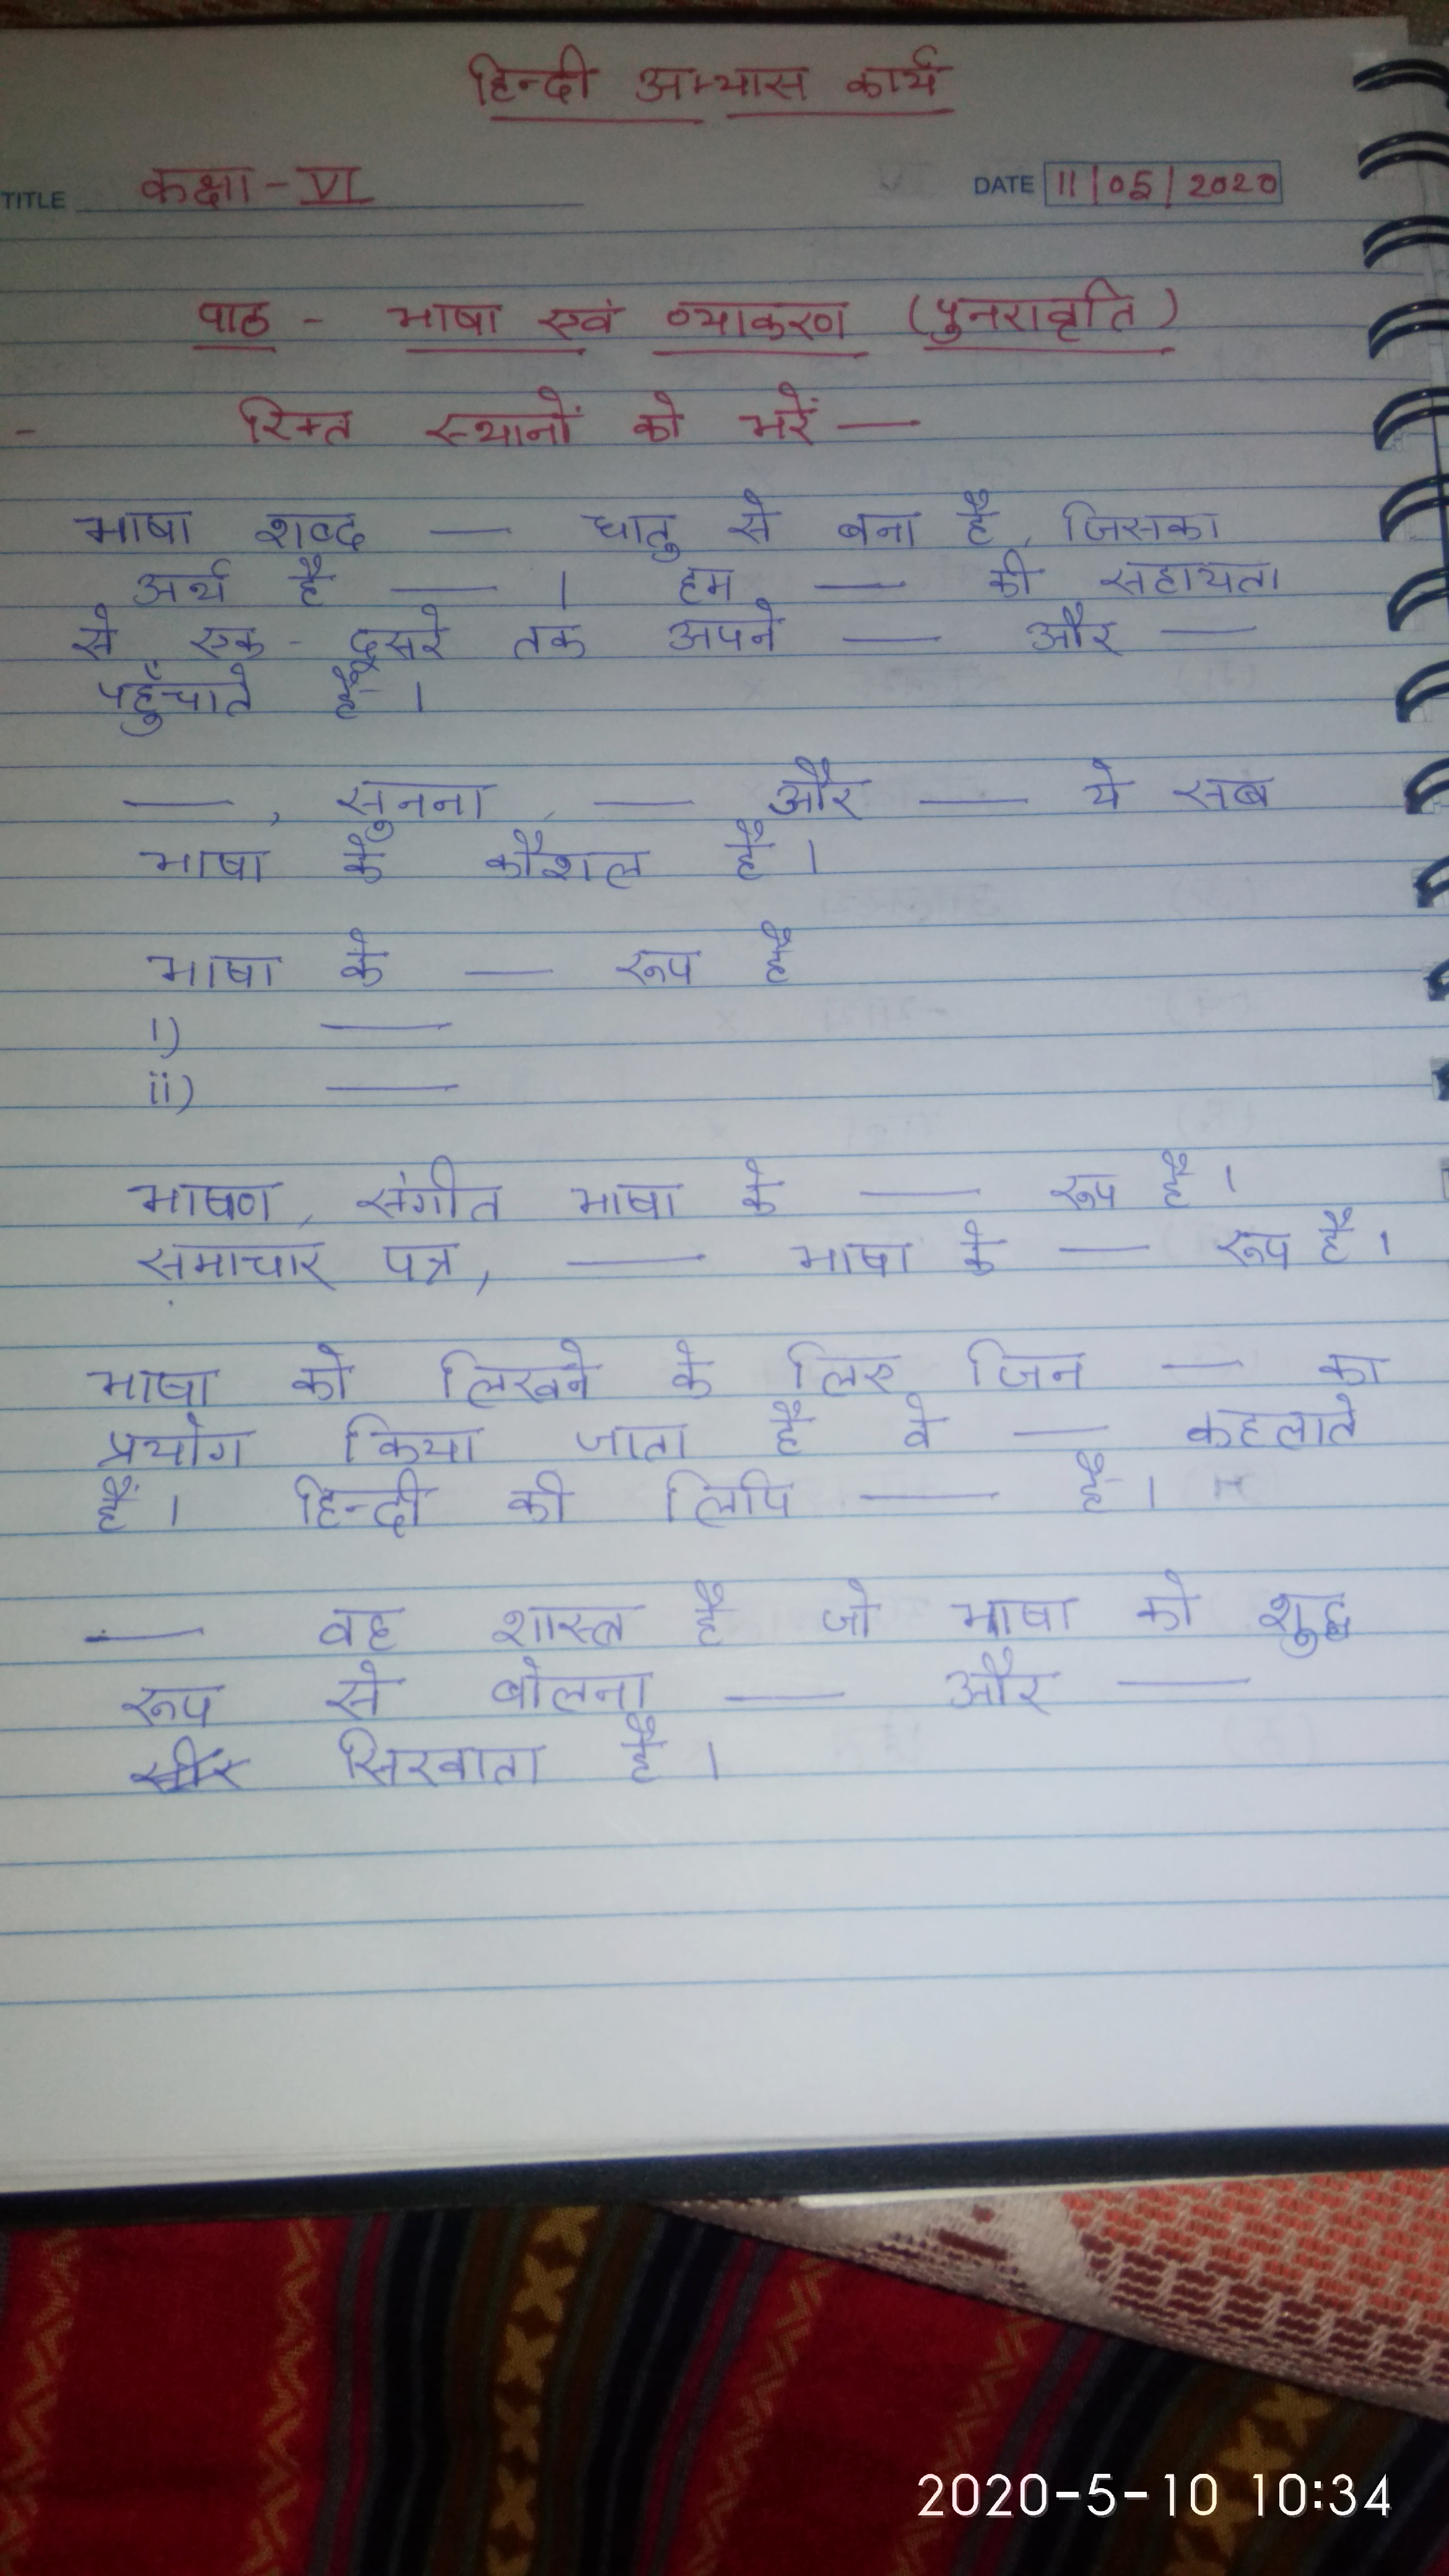 हिन्दी अभ्यास कार्य
TITLE कक्षा - VI DATE 11/05/2020
पाठ - भाषा एवं व्याकरण (पुनरावृति)
- रिक्त स्थानों को भरें —
भाषा शब्द — धातु से बना है, जिसका
अर्थ है — । हम — की सहायता
से एक-दूसरे तक अपने — और —
पहुँचाते हैं ।
—, सुनना, — और — ये सब
भाषा के कौशल हैं ।
भाषा के — रूप हैं
i) —
ii) —
भाषण, संगीत भाषा के — रूप हैं ।
समाचार पत्र, — भाषा के — रूप हैं ।
भाषा को लिखने के लिए जिन — का
प्रयोग किया जाता है वे — कहलाते
हैं । हिन्दी की लिपि — है ।
— वह शास्त्र है जो भाषा को शुद्ध
रूप से बोलना — और —
सिखाता है ।
2020-5-10 10:34